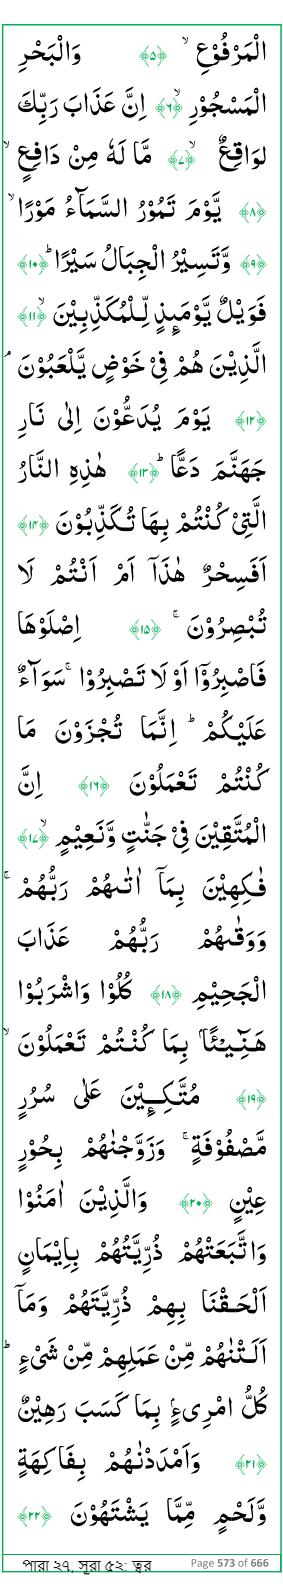 الْمَرْفُوْعِ ۙ ﴿۵﴾ وَالْبَحْرِ
الْمَسْجُوْرِ ۙ﴿۶﴾ اِنَّ عَذَابَ رَبِّكَ
لَوَاقِعٌ ۙ﴿۷﴾ مَّا لَهٗ مِنْ دَافِعٍ ۙ
﴿۸﴾ يَّوْمَ تَمُوْرُ السَّمَآءُ مَوْرًا ۙ
﴿۹﴾ وَّتَسِيْرُ الْجِبَالُ سَيْرًا ؕ﴿۱۰﴾
فَوَيْلٌ يَّوْمَىِٕذٍ لِّلْمُكَذِّبِيْنَ ۙ﴿۱۱﴾
الَّذِيْنَ هُمْ فِيْ خَوْضٍ يَّلْعَبُوْنَ ۘ
﴿۱۲﴾ يَوْمَ يُدَعُّوْنَ اِلٰى نَارِ
جَهَنَّمَ دَعًّا ؕ﴿۱۳﴾ هٰذِهِ النَّارُ
الَّتِيْ كُنْتُمْ بِهَا تُكَذِّبُوْنَ ﴿۱۴﴾
اَفَسِحْرٌ هٰذَاۤ اَمْ اَنْتُمْ لَا
تُبْصِرُوْنَ ۚ ﴿۱۵﴾ اِصْلَوْهَا
فَاصْبِرُوْۤا اَوْ لَا تَصْبِرُوْا ۚ سَوَآءٌ
عَلَيْكُمْ ؕ اِنَّمَا تُجْزَوْنَ مَا
كُنْتُمْ تَعْمَلُوْنَ ﴿۱۶﴾ اِنَّ
الْمُتَّقِيْنَ فِيْ جَنّٰتٍ وَّنَعِيْمٍ ۙ﴿۱۷﴾
فٰكِهِيْنَ بِمَاۤ اٰتٰىهُمْ رَبُّهُمْ ۚ
وَوَقٰىهُمْ رَبُّهُمْ عَذَابَ
الْجَحِيْمِ ﴿۱۸﴾ كُلُوْا وَاشْرَبُوْا
هَنِيْٓـًٔۢا بِمَا كُنْتُمْ تَعْمَلُوْنَ ۙ
﴿۱۹﴾ مُتَّكِـِٕيْنَ عَلٰى سُرُرٍ
مَّصْفُوْفَةٍ ۚ وَزَوَّجْنٰهُمْ بِحُوْرٍ
عِيْنٍ ﴿۲۰﴾ وَالَّذِيْنَ اٰمَنُوْا
وَاتَّبَعَتْهُمْ ذُرِّيَّتُهُمْ بِاِيْمَانٍ
اَلْحَقْنَا بِهِمْ ذُرِّيَّتَهُمْ وَمَاۤ
اَلَتْنٰهُمْ مِّنْ عَمَلِهِمْ مِّنْ شَيْءٍ ؕ
كُلُّ امْرِىءٍۭ بِمَا كَسَبَ رَهِيْنٌ
﴿۲۱﴾ وَاَمْدَدْنٰهُمْ بِفَاكِهَةٍ
وَّلَحْمٍ مِّمَّا يَشْتَهُوْنَ ﴿۲۲﴾
পারা ২৭, সূরা ৫২: ত্বূর Page 573 of 666